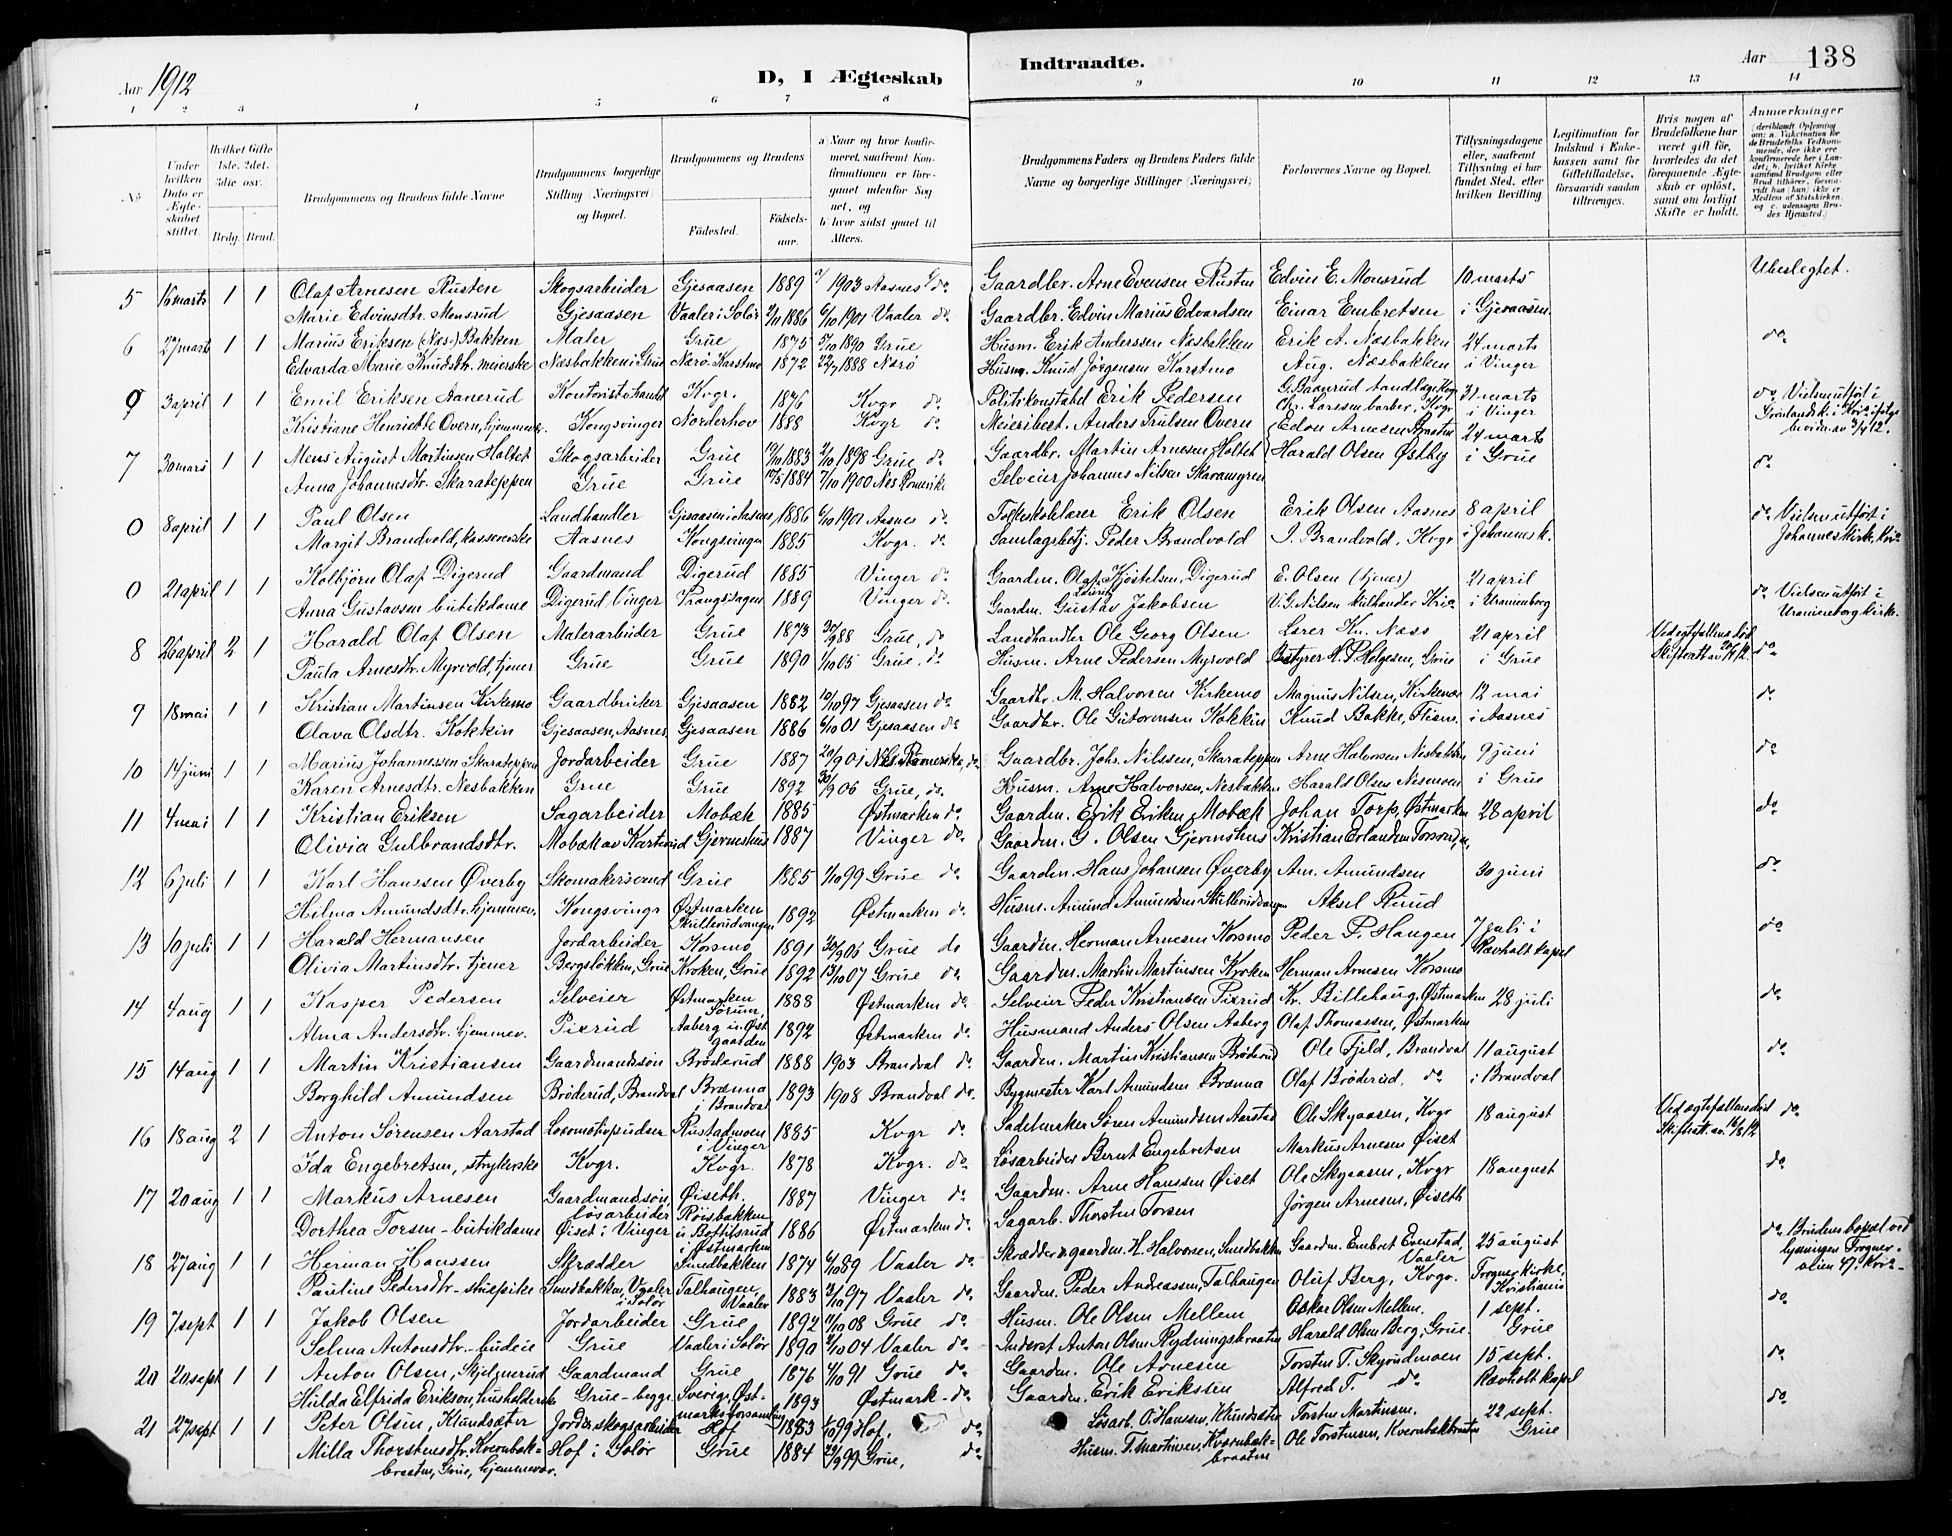 Aar 1912
D, I Ægteskab Indtraadte.
Aar 138
1 2 3 4 5 6 7 8 9 10 11 12 13 14
No
Under hvilken Dato er Ægteskabet stiftet.
Hvilket Gifte 1ste. 2det. 3die osv.
Brdg. Brud.
Brudgommens og Brudens fulde Navne
Brudgommens borgerlige Stilling (Næringsvei) og Bopæl.
Brudgommens og Brudens
Fødested. Fødselsaar.
a) Naar og hvor konfirmeret, saafremt Konfirmationen er foregaaet udenfor Sognet, og
b) hvor sidst gaaet til Alters.
Brudgommens Faders og Brudens Faders fulde Navne og borgerlige Stillinger (Næringsvei)
Forlovernes Navne og Bopæl.
Tillysningsdagene eller, saafremt Tillysning ei har fundet Sted, efter hvilken Bevilling.
Legitimation for Indskud i Enkekassen samt for Giftetilladelse, forsaavidt saadan tiltrænges.
Hvis nogen af Brudefolkene har været gift før, hvorledes da det foregaaende Ægteskab er opløst, samt om lovligt Skifte er holdt.
Anmerkninger
5 16 marts 1 1 Olaf Arnesen Rusten Skogsarbeider Gjesaasen 1889 1903 Aasnes do Gaardbr. Arne Evensen Rusten Edvin E. Monsrud 10 marts Ubeslegtet.
Marie Edvinsdtr. Monsrud Gjesaasen Vaaler i Solør 1886 6/10 1901 Vaaler do Gaardbr. Edvin Marius Edvardsen Einar Embretsen i Gjesaasen.
6 27 marts 1 1 Marius Eriksen (Næs.) Bakken Maler Grue 1875 5/10 1890 Grue Husm. Erik Anderssen Næsbakken Erik A. Næsbakken 24 marts do
Edvarda Marie Knudsdtr. meierske Næsbakken i Grue Nærø. Karstmo 1872 22/7 1888 Nærø Husm. Knud Jörgensen Karstmo Aug. Næsbakken i Vinger
0 3 april 1 1 Emil Eriksen Aanerud Kontorist Kvgr. 1876 Kvgr do Politikonstabel Erik Pedersen 31 marts do Vielsen utført i
Kristiane Henriette Overn, hjemmev. Kongsvinger Norderhov 1888 Kvgr do Meieribest. Anders Trulsen Overn Chr. Larssen barber, Kvgr i Vinger
7 30 mars 1 1 Mens August Martinsen Holtet Skogsarbeider Grue 1883 2/10 1898 Grue do Gaardbr. Martin Arnesen Holtet Harald Olsen Østby 24 marts i Grue do
Anna Johannesdtr. Skarateppen Grue Grue 1884 7/10 1900 Nes Romerike Selveier Johannes Nilsen
0 8 april 1 1 Paul Olsen Landhandler Gjesaasen i Aasnes 1886 6/10 1901 Aasnes do Folkeskolelærer Erik Olsen Erik Olsen Aasnes 8 april do Vielsen utført i
Margit Brandvold, kassererske Aasnes Kongsvinger 1885 Kvgr. do Samlagsbstj. Peder Brandvold J. Brandvold, Kvgr i Johannesk. Johannes kirke, Kr.a
0 21 april 1 1 Kolbjörn Olaf Digerud Gaardmand Digerud 1885 Vinger do Gaardm. Olaf Kjøstelsen, Digerud E. Olsen (tjener) 21 april do Vielsen utført i
Anna Gustavsen butikdame Digerud Vinger 1889 Vinger do Gaardm. Gustav Jakobsen V. G. Nilsen i Uranienborg Uranienborg kirke.
8 26 april 2 1 Harald Olaf Olsen Malerarbeider Grue 1873 88 Grue, do Landhandler Ole Georg Olsen Lærer Kr. Næss 21 april Ved egtefællens død do
Paula Arnesdtr. Myrvold, tjener Grue Grue 1890 1/10 05 Grue, do Husm. Arne Pedersen Myrvold Bestyrer H. P. Helgesen, Grue i Grue
9 18 mai 1 1 Kristian Martinsen Kirkemo Gaardbruker Gjesaasen 1882 10/10 97 Gjesaasen do Gaardbr. M. Halvorsen Kirkemo Magnus Nilsen, Kirkenær 12 mai do
Olava Olsdtr. Kokkin Gjesaasen, Aasnes Gjesaasen 1886 6/10 01 Gjesaasen do Gaardbr. Ole Gutormsen Kokkin Knud Bakke, Flisen. i Aasnes
10 14 juni 1 1 Marius Johannessen Skarateppen Jordarbeider Grue 1887 20/9 01 Nes Romerike, do Gaardbr. Johs. Nilssen, Skarateppen Arne Halvorsen Nesbakken 9 juni do
Karen Arnesdtr. Nesbakken Grue Grue 1892 30/9 06 Grue, do. Husm. Arne Halvorsen, Nesbakken Harald Olsen Nesmoen i Grue
11 4 mai 1 1 Kristian Eriksen Sagarbeider Mobæk 1885 Østmarken do Gaardm. Erik Eriksen Mobæk Johan Torp, Østmarken 28 april do
Olivia Gulbrandsdtr. Mobæk av Kasterud Gjermshus 1887 Vinger do Gaardm. G. Olsen Gjermshus Kristian Erlandsen
12 6 juli 1 1 Karl Hanssen Øverby Skomakersvend Grue 1885 1/10 99 Grue do Gaardm. Hans Johansen Øverby Am. Amundsen 30 juni do
Hilma Amundsdtr. hjemmev. Kongsvingr Østmarken Skullerudvangen 1892 Østmarken do Husm. Amund Amundsen Skullerudvangen Aksel Ruud
13 10 juli 1 1 Harald Hermansen Jordarbeider Korsmo 1891 30/9 06 Grue do Gaardm. Herman Arnesen Korsmo Peder P. Haugen 7 juli i do
Olivia Martinsdtr. tjener Bergsløkken, Grue Kroken, Grue 1892 13/10 07 Grue do Gaardm. Martin Martinsen Kroken Herman Arnesen Korsmo Rævholt kapel
14 4 aug 1 1 Kasper Pedersen Selveier Østmarken 1888 Østmarken do Selveier Peder Kristiansen Pixrud Kr. Billehaug, Østmarken 28 juli do
Alma Andersdtr. hjemmev. Pixrud Aaberg in Østgaarden 1892 Østmarken do Husmand Anders Olsen Aaberg Olaf Thomassen, Østmarken
15 14 aug 1 1 Martin Kristiansen Gaardmandssøn Brøderud 1888 1903 Brandval do Gaardm. Martin Kristiansen Brøderud Ole Fjeld, Brandval 11 august do
Borghild Amundsen Brøderud, Brandval Brænna i Brandval 1893 1908 Brandval do Bygmester Karl Amundsen Brænna Olaf Brøderud, do i Brandval
16 18 aug 2 1 Anton Sørensen Aarstad Locomotivpudser Rustadmoen i Vinger 1885 Kvgr do Sadelmaker Søren Amundsen Aarstad Ole Skyaasen, Kvgr 18 august Ved ægtefællens død do
Ida Engebretsen, strykerske Kvgr. Kvgr. 1878 Kvgr. do Løsarbeider Bernt Engebretsen Markus Arnesen Øiset
17 20 aug 1 1 Markus Arnesen Gaardmandssøn, løsarbeider Øiseth. 1887 Vinger do Gaardm. Arne Hanssen Øiset Ole Skyaasen, Kvgr 18 august do
Dorthea Torsen - butikdame Øiset i Vinger Røisbakken u. Bottilsrud i Østmarken 1886 Østmarken do Sagarb. Thorsten Torsen Jörgen Arnesen, Øiseth
18 27 aug 1 1 Herman Hanssen Skrædder Sundbakken 1874 6/10 89 Vaaler do Skrædder & gaardm. H. Halvorsen, Sundbakken Gaardm. Embret Evenstad, Vaaler 25 august do Brudens bopæl ved lysningen Frogner-
Pauline Pedersdtr - skiepike Sundbakken, Vaaler i Solør Talhaugen, Vaaler 1883 3/10 97 Vaaler do Gaardm. Peder Andreassen, Talhaugen Oluf Berg, Kvgr. Frogner kirke, Kristiania alien 47. Kr.a
19 7 sept 1 1 Jakob Olsen Jordarbeider Grue 1892 11/10 08 Grue do Husm. Ole Olsen Mellem Oskar Olsen Mellem. 1 sept. do
Selma Antonsdtr. - budeie Grue Vaaler i Solør 1890 2/10 04 Vaaler do Inderst Anton Olsen Rydningsbraaten Harald Olsen Berg, Grue. Grue
20 20 sept 1 1 Anton Olsen, Skjelnerud Gaardmand Grue 1876 4/10 91 Grue do Gaardm. Ole Arnesen Torsten T. Skyrudmoen 15 sept. do
Hilda Elfrida Erikson, husholderske Grue - begge Sverige, Østmarks forsamling 1893 Østmark - do Gaardm. Erik Erikssen Alfred T. do Rævholt kapel
21 27 sept 1 1 Peter Olsen, Klundsæter Jord & skogsarbeider Hof 1883 1/10 99 Hof, do Løsarb. O. Hanssen, Klundsæter Torsten Martinsen. 22 sept. do
Milla Thorstensdtr. Kvernbakbraaten, Grue, hjemmevær. Hof i Solør Grue 1884 22/9 99 Grue, do Husm. T. Martinsen, Kvernbakbraaten Ole Torstensen, Kvernbakbraaten Grue